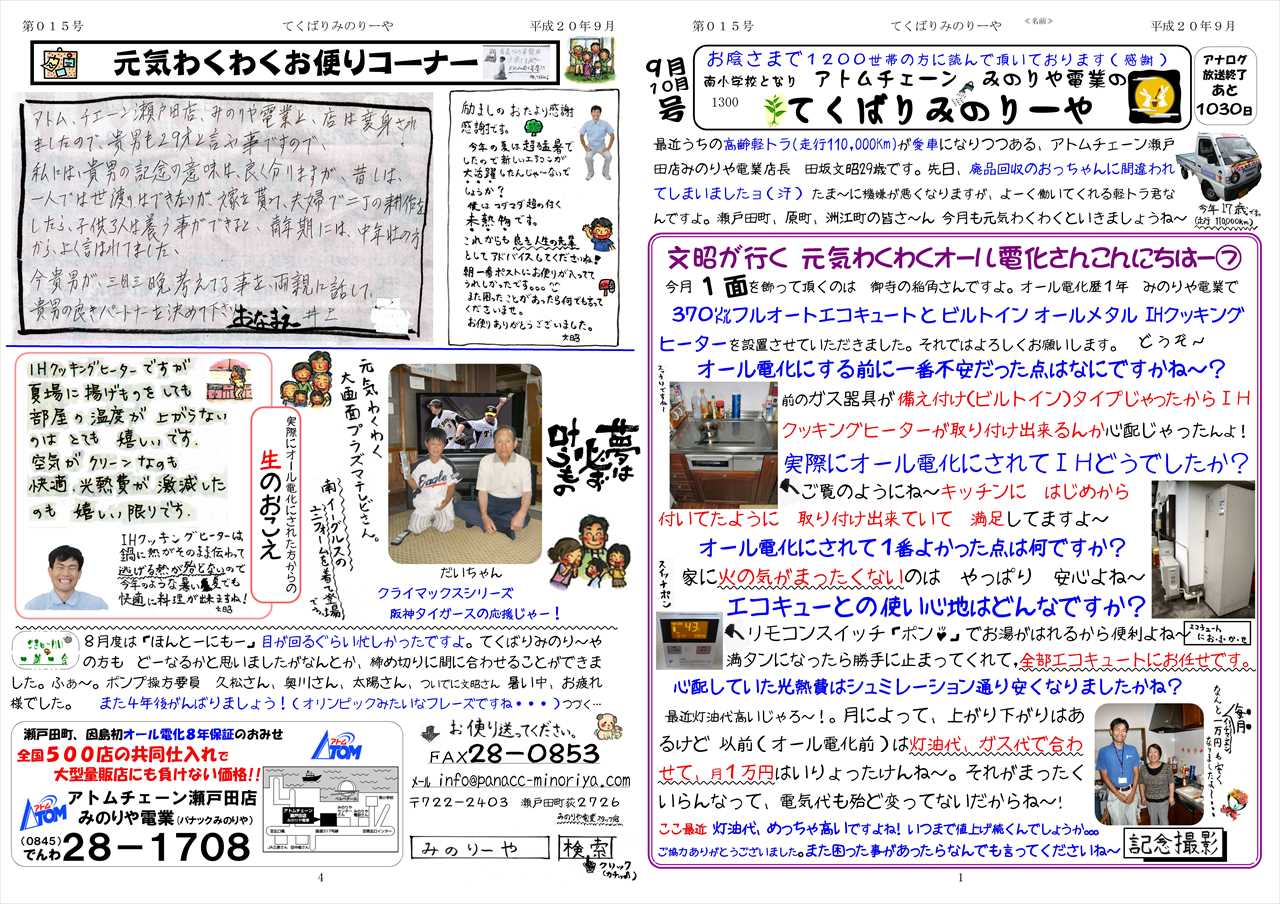 第015号 てくばりみのりーや 平成20年9月
元気わくわくお便りコーナー
アトム、チェーン瀬戸田店、みのりや電業と、店は変身され
ましたので、貴男も29才と言や事ですので、
私には、貴男の記念の意味は、良く分りますが、昔しは、
一人では世渡りはできないが、嫁を貰って、夫婦で二丁の耕作を
したら、子供3人は養う事ができると、青年期には、中年壮の方
から、よく言はれてました、
今貴男が、三日三晩考えてる事を、両親に話して、
貴男の良きパートナーを決めて下さい
おなまえ 井上
励ましの おたより感謝
感謝です。
今年の夏は超猛暑で
したので新しいエアコンが
大活躍したんじゃ〜ないで
しょうか?
僕はコテコテ超の付く
未熟物です。
これからも 良き人生の先輩
としてアドバイスしてくださいね!
朝一番ポストにお便りが入ってて
うれしかったです。。。
また困ったことがあったら何でも言って
くださいませ。
お便りありがとうございました。
文昭
IHクッキングヒーターですが
夏場に揚げものをしても
部屋の温度が上がらない
のは とても 嬉しいです.
空気が クリーンなのも
快適、光熱費が 激減した
のも 嬉しい限りです.
実際にオール電化にされた方からの
生のおこえ
IHクッキングヒーターは
鍋に熱がそのまま伝わって
逃げる熱が殆どないので
今年のような暑い夏でも
快適に料理が出来ますね!
文昭
元気わくわく
大画面プラズマテレビさん。
南イーグルスの
ユニフォームを着て登場
だいちゃん
クライマックスシリーズ
阪神タイガースの応援じゃー!
夢は
必ず
叶うもの
8月度は「ほんとーにもー」目が回るぐらい忙しかったですよ。てくばりみのり〜や
の方も どーなるかと思いましたがなんとか、締め切りに間に合わせることができま
した。ふぁ〜。ポンプ操方要員 久松さん、奥川さん、太陽さん、ついでに文昭さん 暑い中、お疲れ
様でした。 また4年後がんばりましょう!(オリンピックみたいなフレーズですね・・・)つづく…
瀬戸田町、因島初オール電化8年保証のおみせ
全国500店の共同仕入れで
大型量販店にも負けない価格!!
アトム ATOM
アトム ATOM
アトムチェーン瀬戸田店
みのりや電業(パナックみのりや)
(0845)
でんわ 28-1708
お便り送ってください。
FAX28-0853
メール info@panacc-minoriya.com
〒722-2403 瀬戸田町荻2726
みのりや電業スタッフ宛
みのりーや 検索
クリック
(カチッ)
4
第015号 てくばりみのりーや 《名前》 平成20年9月
9月
10月
号
お陰さまで1200世帯の方に読んで頂いております(感謝)
1300
南小学校となり アトムチェーン みのりや電業の
てくばりみのりーや
アナログ
放送終了
あと
1030日
最近うちの高齢軽トラ(走行110,000Km)が愛車になりつつある、アトムチェーン瀬戸
田店みのりや電業店長 田坂文昭29歳です。先日、廃品回収のおっちゃんに間違われ
てしまいましたョ(汗) たま〜に機嫌が悪くなりますが、よーく働いてくれる軽トラ君な
んですよ。瀬戸田町、原町、洲江町の皆さ〜ん 今月も元気わくわくといきましょうね〜
今年17歳です。
(走行110,000km)
文昭が行く 元気わくわくオール電化さんこんにちはー⑦
今月 1面を飾って頂くのは 御寺の稲角さんですよ。オール電化歴1年 みのりや電業で
370㍑フルオートエコキュートと ビルトイン オールメタル IHクッキング
ヒーターを設置させていただきました。それではよろしくお願いします。 どうぞ〜
オール電化にする前に一番不安だった点はなにですかね〜?
スッキリですね〜
前のガス器具が 備え付け(ビルトイン)タイプじゃったからIH
クッキングヒーターが取り付け出来るんか心配じゃったんよ!
実際にオール電化にされてIHどうでしたか?
ご覧のようにね〜キッチンに はじめから
付いてたように 取り付け出来ていて 満足してますよ〜
オール電化にされて1番よかった点は何ですか?
スイッチポン
家に火の気がまったくないのは やっぱり 安心よね〜
エコキューとの使い心地はどんなですか?
リモコンスイッチ「ポン♥」でお湯がはれるから便利よね〜
エコキュートに
おふかせ
満タンになったら勝手に止まってくれて,全部エコキュートにお任せです。
心配していた光熱費はシュミレーション通り安くなりましたかね?
最近灯油代高いじゃろ〜!。月によって、上がり下がりはあ
るけど 以前(オール電化前)は灯油代、ガス代で合わ
せて、月1万円はいりょったけんね〜。それがまったく
いらんなって、電気代も殆ど変ってないだからね〜!
毎月
なんと一万円も安く
なりましたよ〜
ここ最近 灯油代、めっちゃ高いですよね!いつまで値上げ続くんでしょうか。。。
ご協力ありがとうございました。また困った事があったらなんでも言ってくださいね〜
記念撮影
1